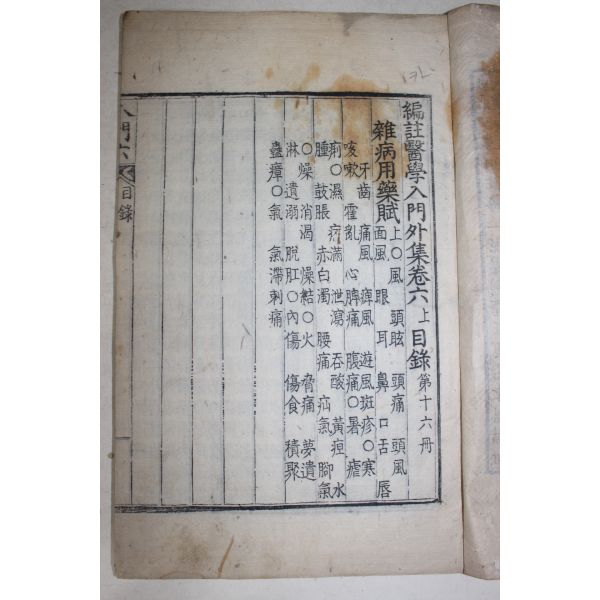 編註醫學入門外集卷六上 目錄 第十六冊
雜病用藥賦 上○風 頭眩 頭痛 頭風
面風 眼 耳 鼻 口舌 唇
牙齒 痛風 痺風 遊風斑疹○寒
咳嗽 霍亂 心脾痛 腹痛○暑 瘧
痢○濕 痞滿 泄瀉 吞酸 黃疸 水
腫 鼓脹 赤白濁 腰痛 疝氣 脚氣
○燥 消渴 燥結○火 脅痛 夢遺
淋 遺溺 脫肛○內傷 傷食 積聚
蠱瘴○氣 氣滯刺痛
入門六 目錄 一